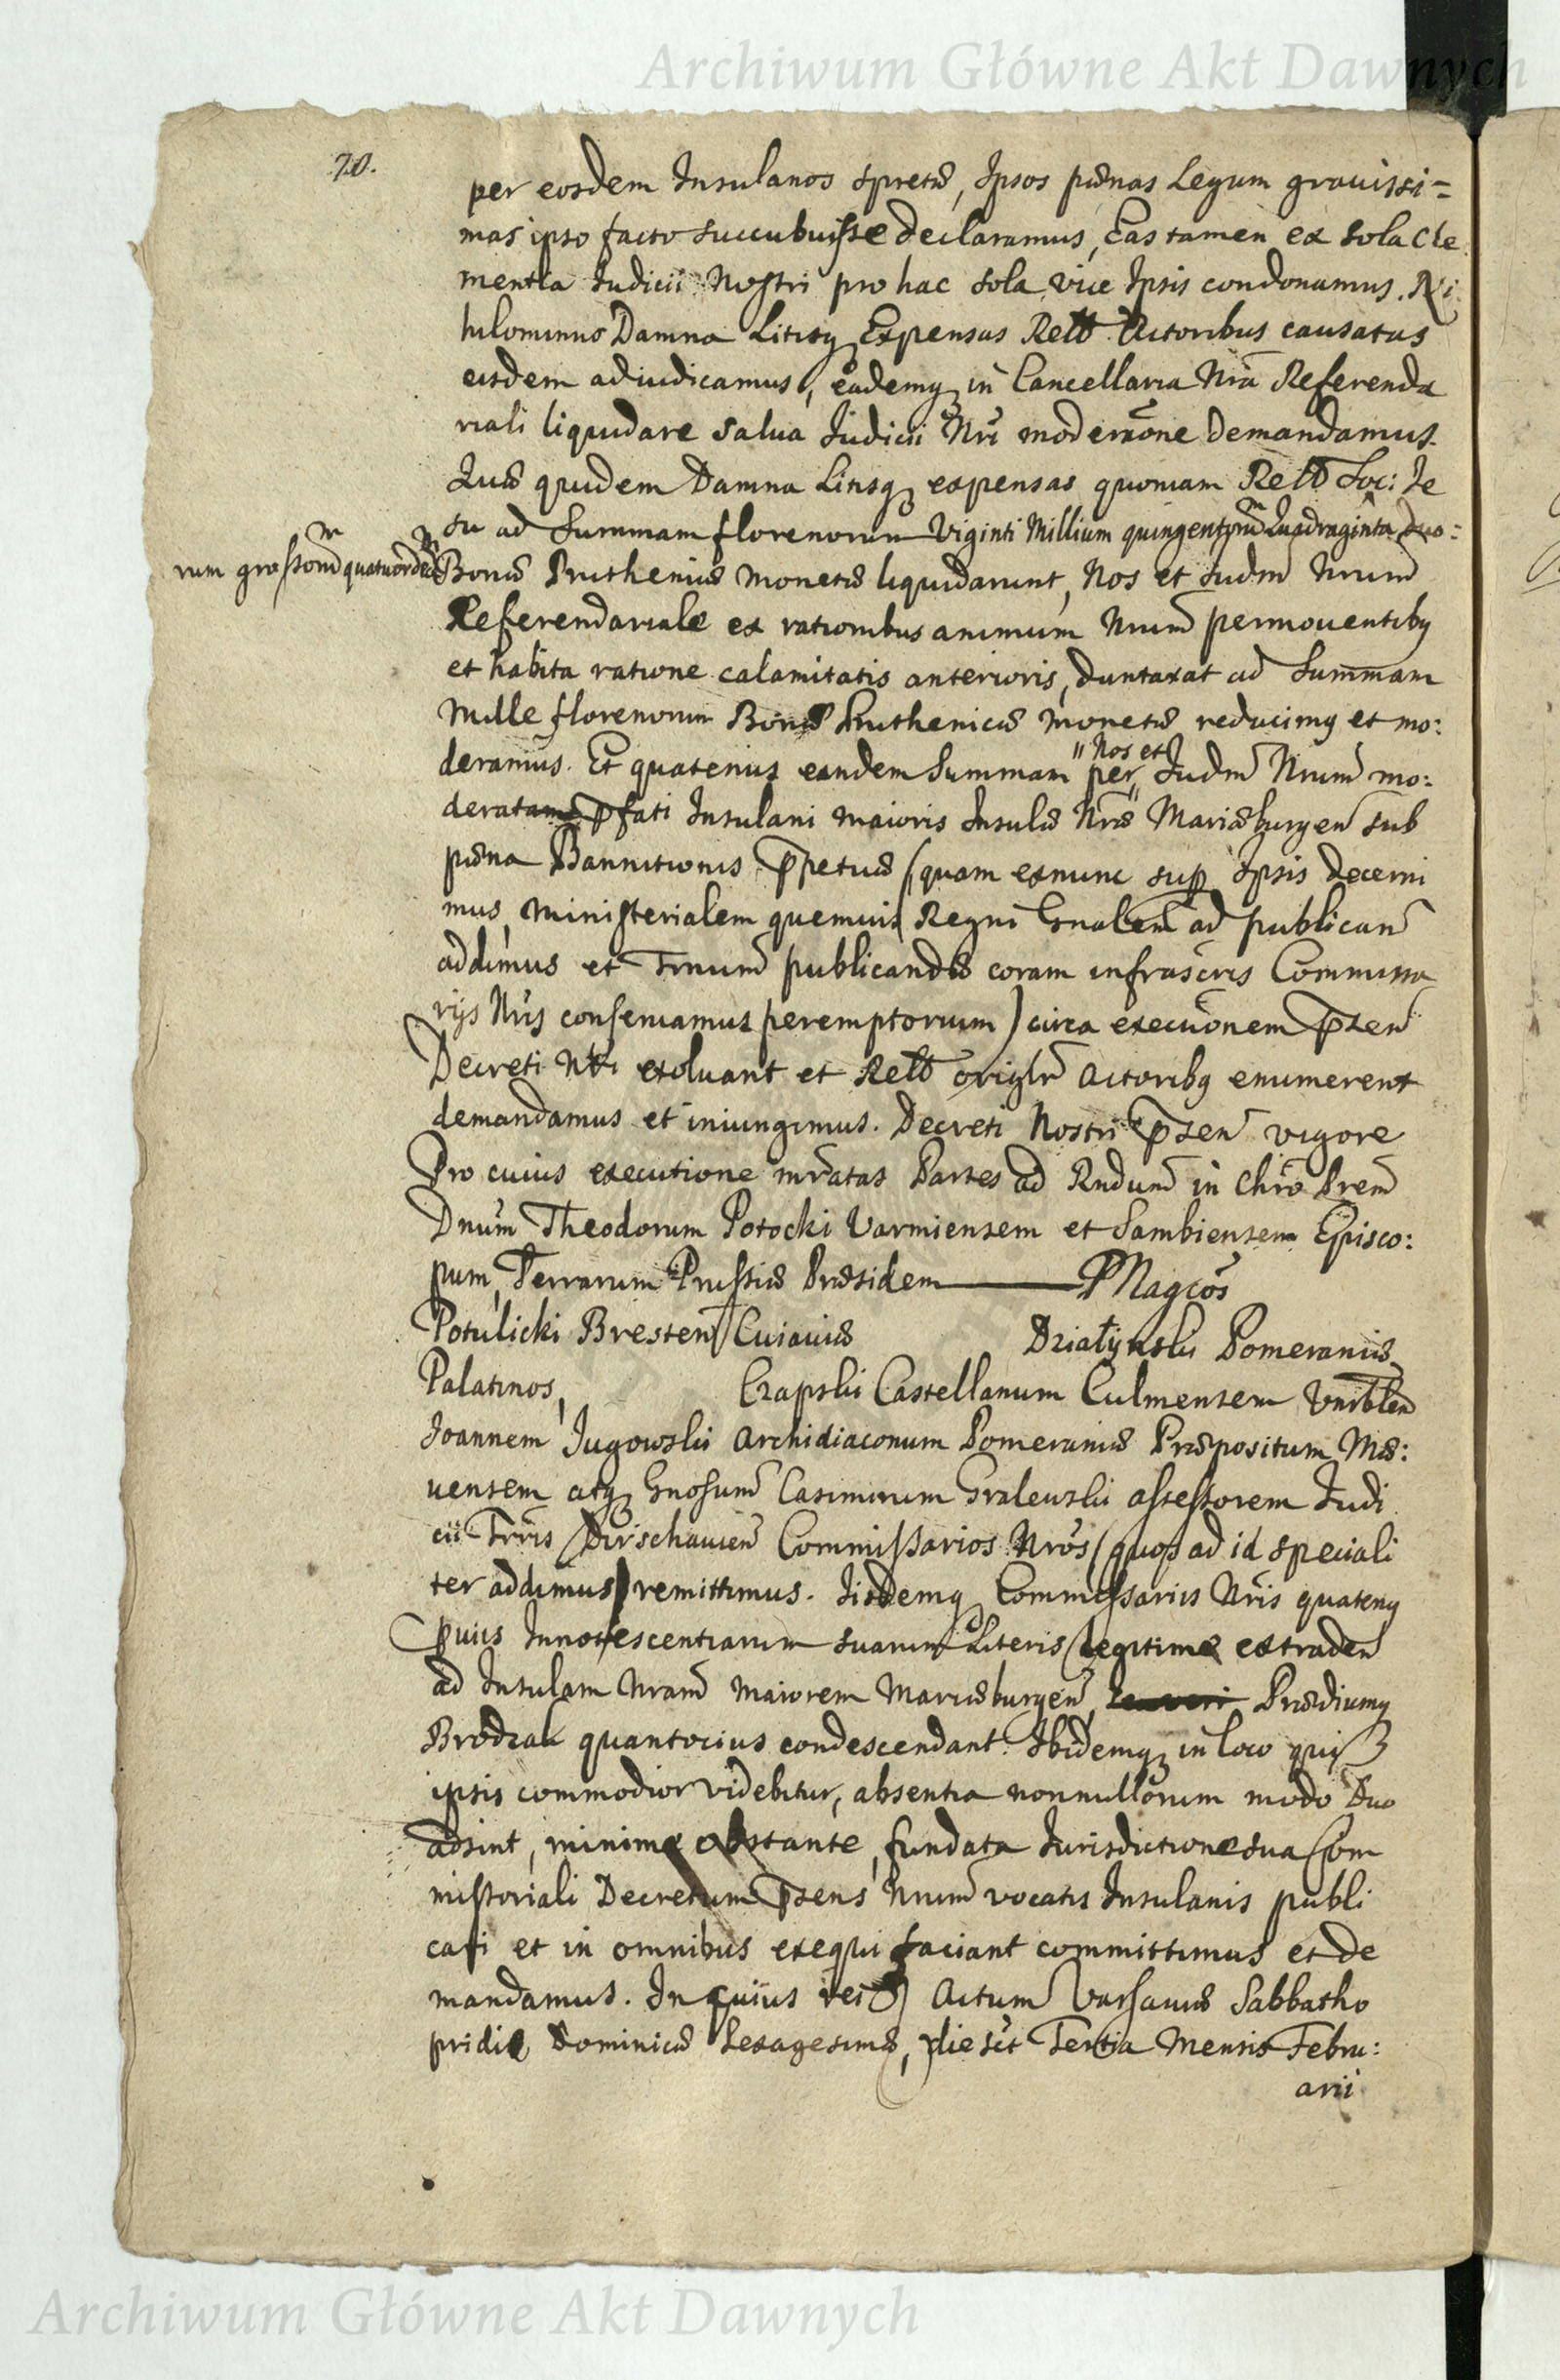 Archiwum Główne Akt Dawnych
20.
per eosdem Insulanos spretæ, Ipsos pænas Legum grauissi=
mas ipso facto succubuisse declaramus, Eas tamen ex sola Cle
mentia Iudicii Nostri pro hac sola vice Ipsis condonamus. Ni
hilominus Damna Litisq Expensas Rell Actoribus causatas
eisdem adiudicamus, eademq in Cancellaria Nra Referenda
riali liquidare salua Iudicii Nri moderaone Demandamus.
Quæ quidem Damna Litisq expensas quoniam Rell Soc: Ie
su ad Summam florenorum Viginti Millium quingentorum Quadraginta duo:
rum grossorum quatuordecim Bonæ Pruthenicæ Monetæ liquidarunt, Nos et Iudm Nrum
Referendariale ex rationibus animum Nrum permouentibq
et habita ratione calamitatis anterioris, duntaxat ad Summam
Mille florenorum Bonæ Pruthenicæ Monetæ reducimq et mo:
deramus. Et quatenus eandem Summam per "Nos et" Iudm Nrum mo:
deratam pfati Insulani maioris Insulæ Nræ Mariæburgen sub
pæna Bannitionis ppetuæ (quam exnunc sup Ipsis decerni
mus, Ministerialem quemuis Regni Gnalem ad publican
addimus et Trnum publicandæ coram infrascris Commissa
rijs Nris conseruamus peremptorium) circa execuonem psen
Decreti Nri exoluant et Rell origlr Actoribq enumerent
demandamus et iniungimus. Decreti Nostri psen vigore
Pro cuius executione mratas Partes ad Rndum in Chro Prem
Dnum Theodorum Potocki Varmiensem et Sambiensem Episco:
pum, Terrarum Prussiæ Præsidem Magcos
Potulicki Bresten Cuiauiæ Działynski Pomeraniæ
Palatinos, Czapski Castellanum Culmensem Vnrblen
Ioannem Jugowski Archidiaconum Pomeraniæ Præpositum Mæ:
uensem atq Gnosum Casimirum Gralewski assessorem Iudi
cii Trris Dirschauien Commissarios Nros (quos ad id speciali
ter addimus) remittimus. Iisdemq Commissariis Nris quatenq
puiis Innotescentiarum suarum Literis legitime extraden
ad Insulam Nram Maiorem Mariæburgen, Prædiumq
Brodzak quantocius condescendant. Ibidemq in loco qui
ipsis commodior videbitur, absentia nonnullorum modo Duo
adsint, minime obstante, fundata Iurisdictione sua Com
missoriali Decretum psens Nrum vocatis Insulanis publi
cari et in omnibus exequi faciant committimus et de
mandamus. In quius rei Actum Varsauiæ Sabbatho
pridie Dominicæ Sexagesimæ, die sct Tertia Mensis Febru:
arii
Archiwum Główne Akt Dawnych